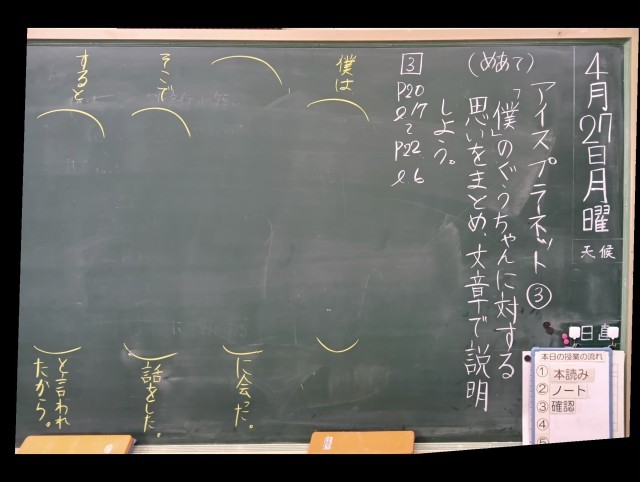 4月27日月曜
天候
日直
本日の授業の流れ
① 本読み
② ノート
③ 確認
④
⑤
アイスプラネット③
(めあて)「僕」のぐうちゃんに対する
思いをまとめ、文章で説明
しよう。
3
P20
l17
〜
P22
l6
僕は( )
( )に会った。
そこで( )話をした。
すると( )と言われ
たから。